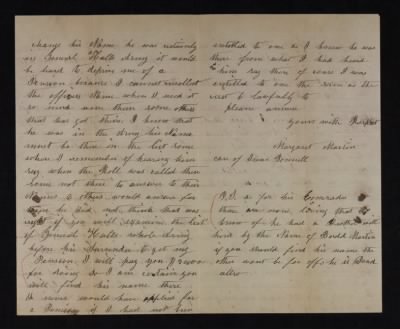 change his Name he was entirely
in General Halls army it would
be hard to deprive me of a
Pension because I cannot recollect
the officers Name when I need it
so send me them some other
that has got this. I know that
he was in the army his Name
must be there in the list some
where I remember of hearing him
say when the Roll was called there
some not there to answer to their
Names & others would answer for
them he did not think that was
right if you will examine the list
of General Halls whole army
before his Surrender to get my
Pension I will pay you
for doing So I am certain you
will find his name there
I would have applied for
a Pension if I had not been
entitled to one as I know he was
there from what I had heard
him say then of course I was
entitled to one the same as the
rest & lawfully to
please answer
yours with Respect
Margaret Martin
care of Isaac Bonnell
P.S. as for his Comrads
there are none living that I
know of he had a Brother with
him by the Name of Martin
if you should find his name the
other wont be far off he is Dead
also